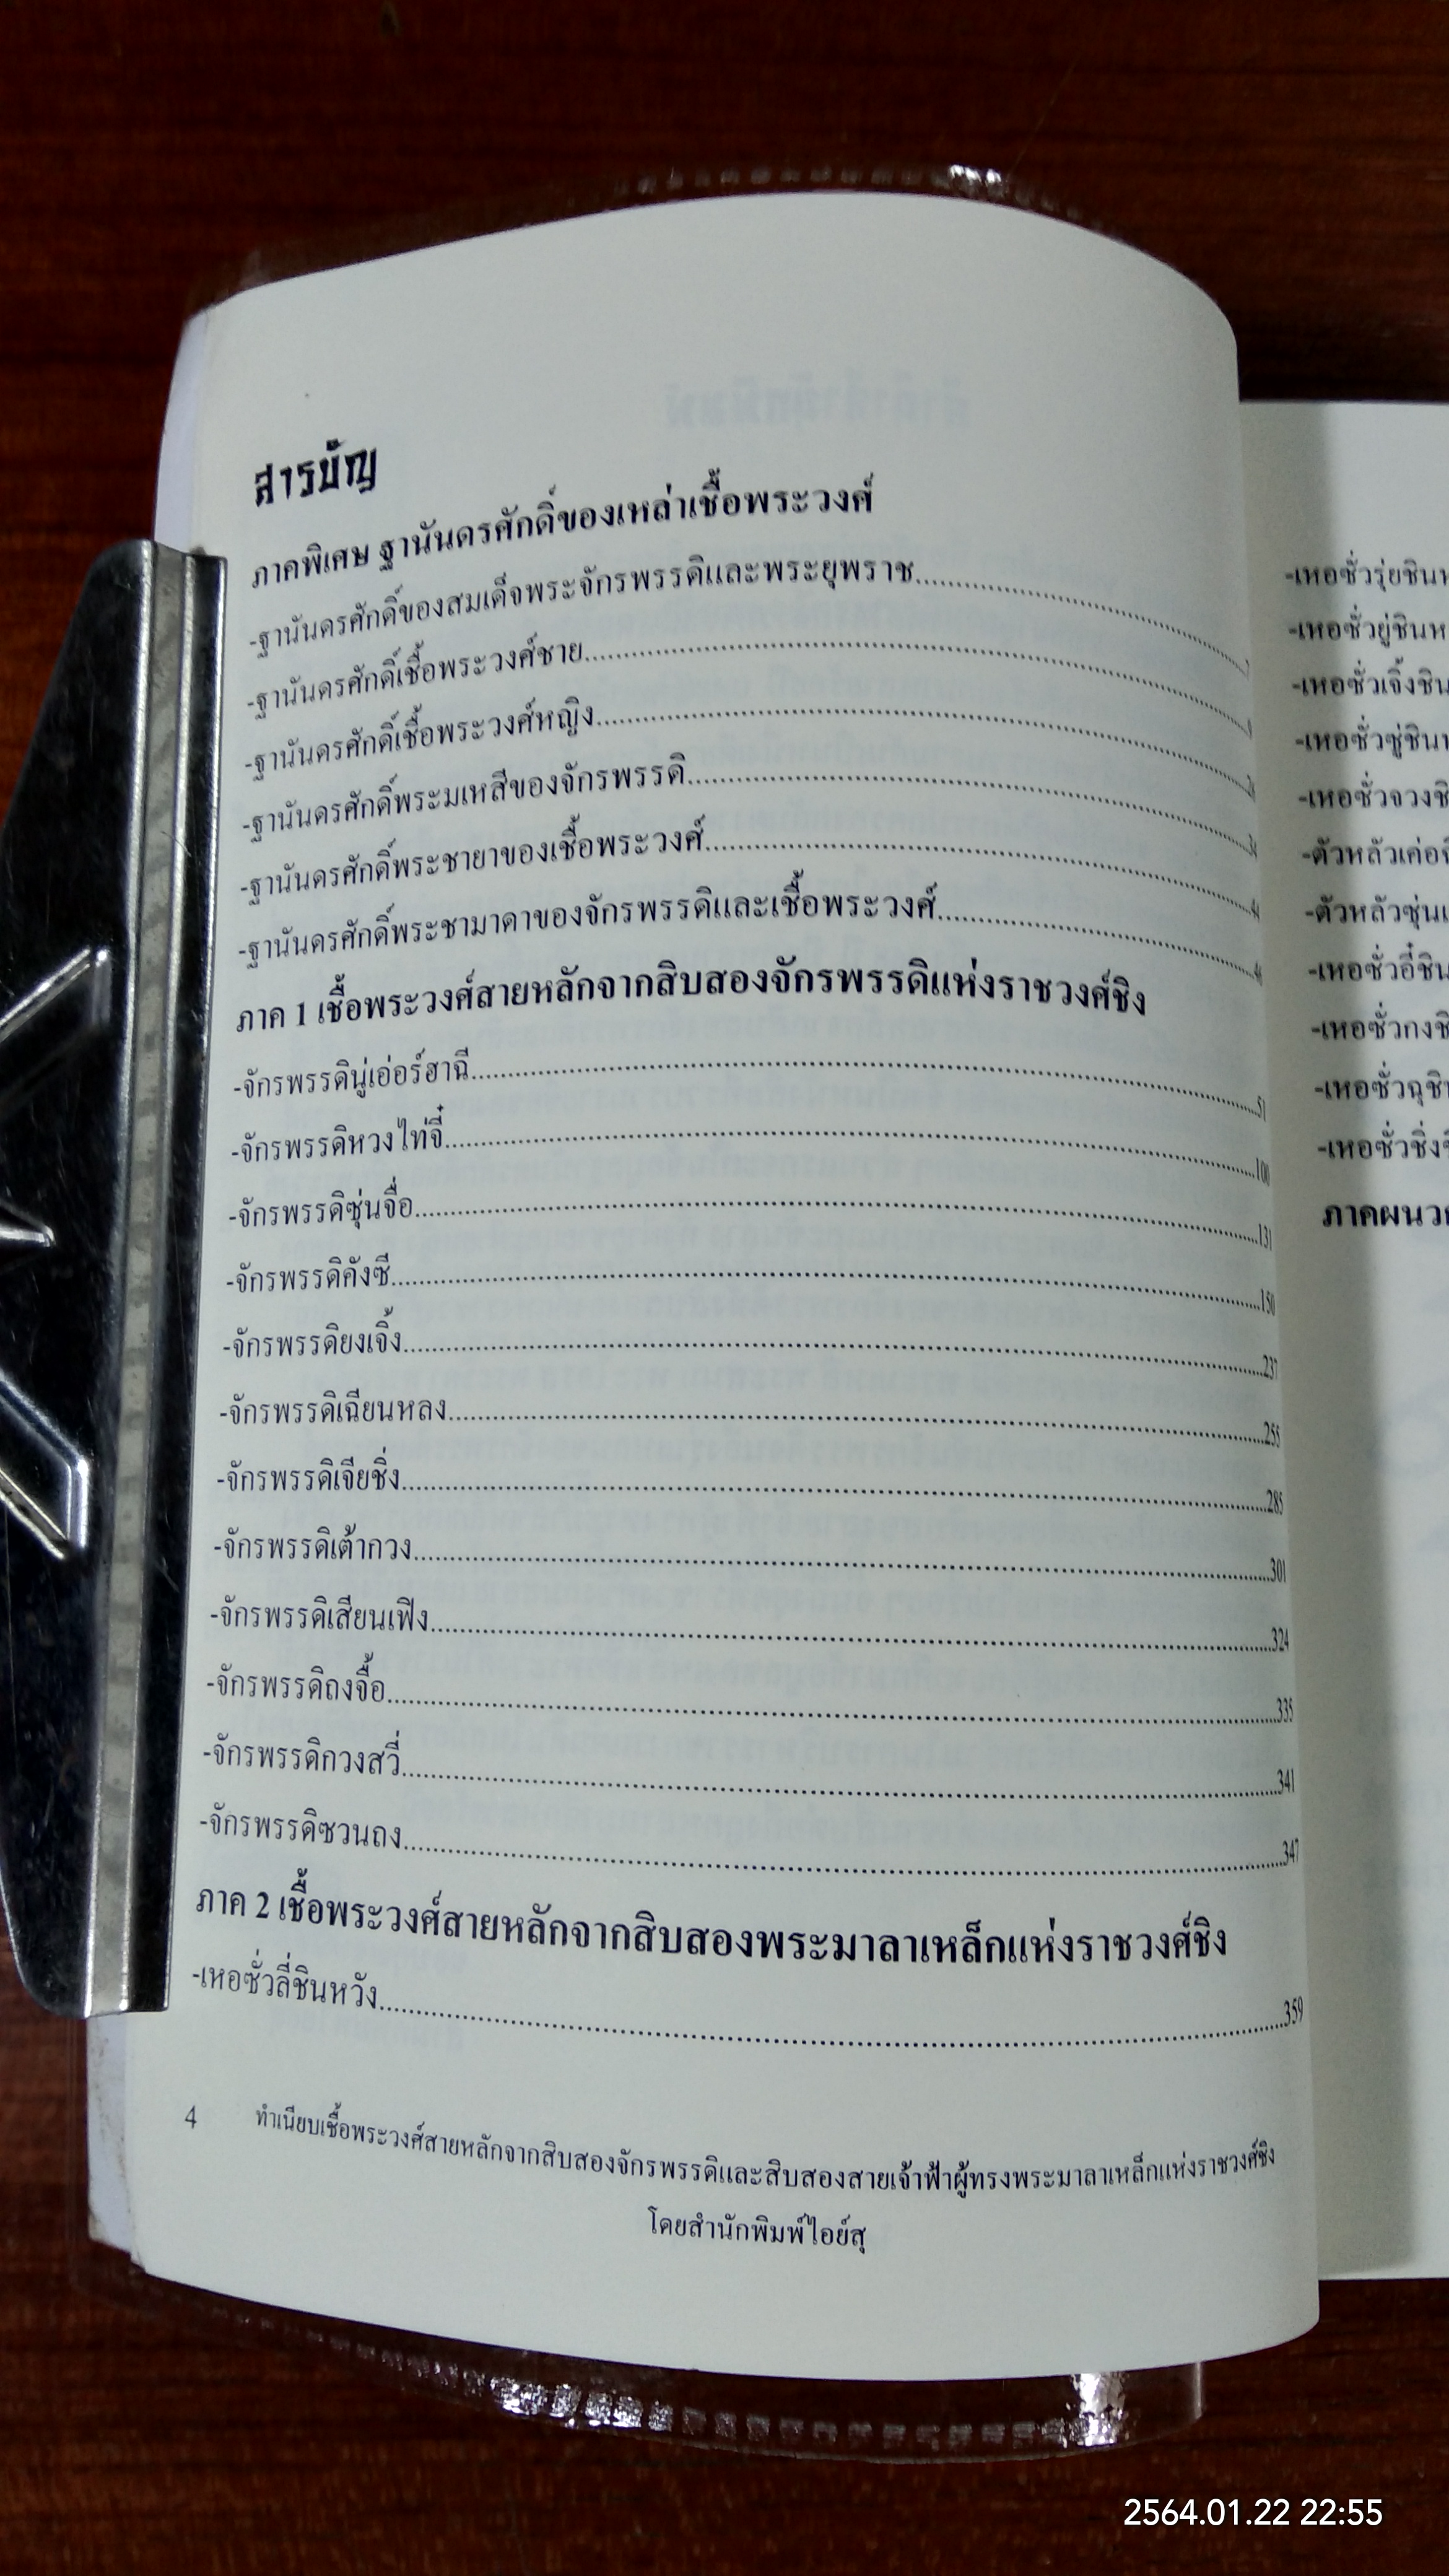 สารบัญ
ภาคพิเศษ ฐานันดรศักดิ์ของเหล่าเชื้อพระวงศ์
-ฐานันดรศักดิ์ของสมเด็จพระจักรพรรดิและพระยุพราช....................7
-ฐานันดรศักดิ์เชื้อพระวงศ์ชาย....................
-ฐานันดรศักดิ์เชื้อพระวงศ์หญิง....................28
-ฐานันดรศักดิ์พระมเหสีของจักรพรรดิ....................34
-ฐานันดรศักดิ์พระชายาของเชื้อพระวงศ์....................44
-ฐานันดรศักดิ์พระชามาดาของจักรพรรดิและเชื้อพระวงศ์....................46
ภาค 1 เชื้อพระวงศ์สายหลักจากสิบสองจักรพรรดิแห่งราชวงศ์ชิง
-จักรพรรดินู่เอ่อร์ฮาฉี....................51
-จักรพรรดิหวงไท่จี๋....................100
-จักรพรรดิซุ่นจื่อ....................131
-จักรพรรดิคังซี....................150
-จักรพรรดิยงเจิ้ง....................237
-จักรพรรดิเฉียนหลง....................255
-จักรพรรดิเจียชิ่ง....................285
-จักรพรรดิเต้ากวง....................301
-จักรพรรดิเสียนเฟิง....................324
-จักรพรรดิถงจื้อ....................335
-จักรพรรดิกวงสวี่....................341
-จักรพรรดิซวนถง....................347
ภาค 2 เชื้อพระวงศ์สายหลักจากสิบสองพระมาลาเหล็กแห่งราชวงศ์ชิง
-เหอซั่วลี่ชินหวัง....................359
4 ทำเนียบเชื้อพระวงศ์สายหลักจากสิบสองจักรพรรดิและสิบสองสายเจ้าฟ้าผู้ทรงพระมาลาเหล็กแห่งราชวงศ์ชิง
โดยสำนักพิมพ์ไอย์สุ
-เหอซั่วรุ่ยชิน
-เหอซั่วยู่ชิน
-เหอซั่วเจิ้งชิน
-เหอซั่วซู่ชิน
-เหอซั่วจวง
-ตัวหลัวเค่อ
-ตัวหลัวซุ่น
-เหอซั่วอี๋ชิน
-เหอซั่วกง
-เหอซั่วฉุ
-เหอซั่วชิ่ง
ภาคผนวก
2564.01.22 22:55